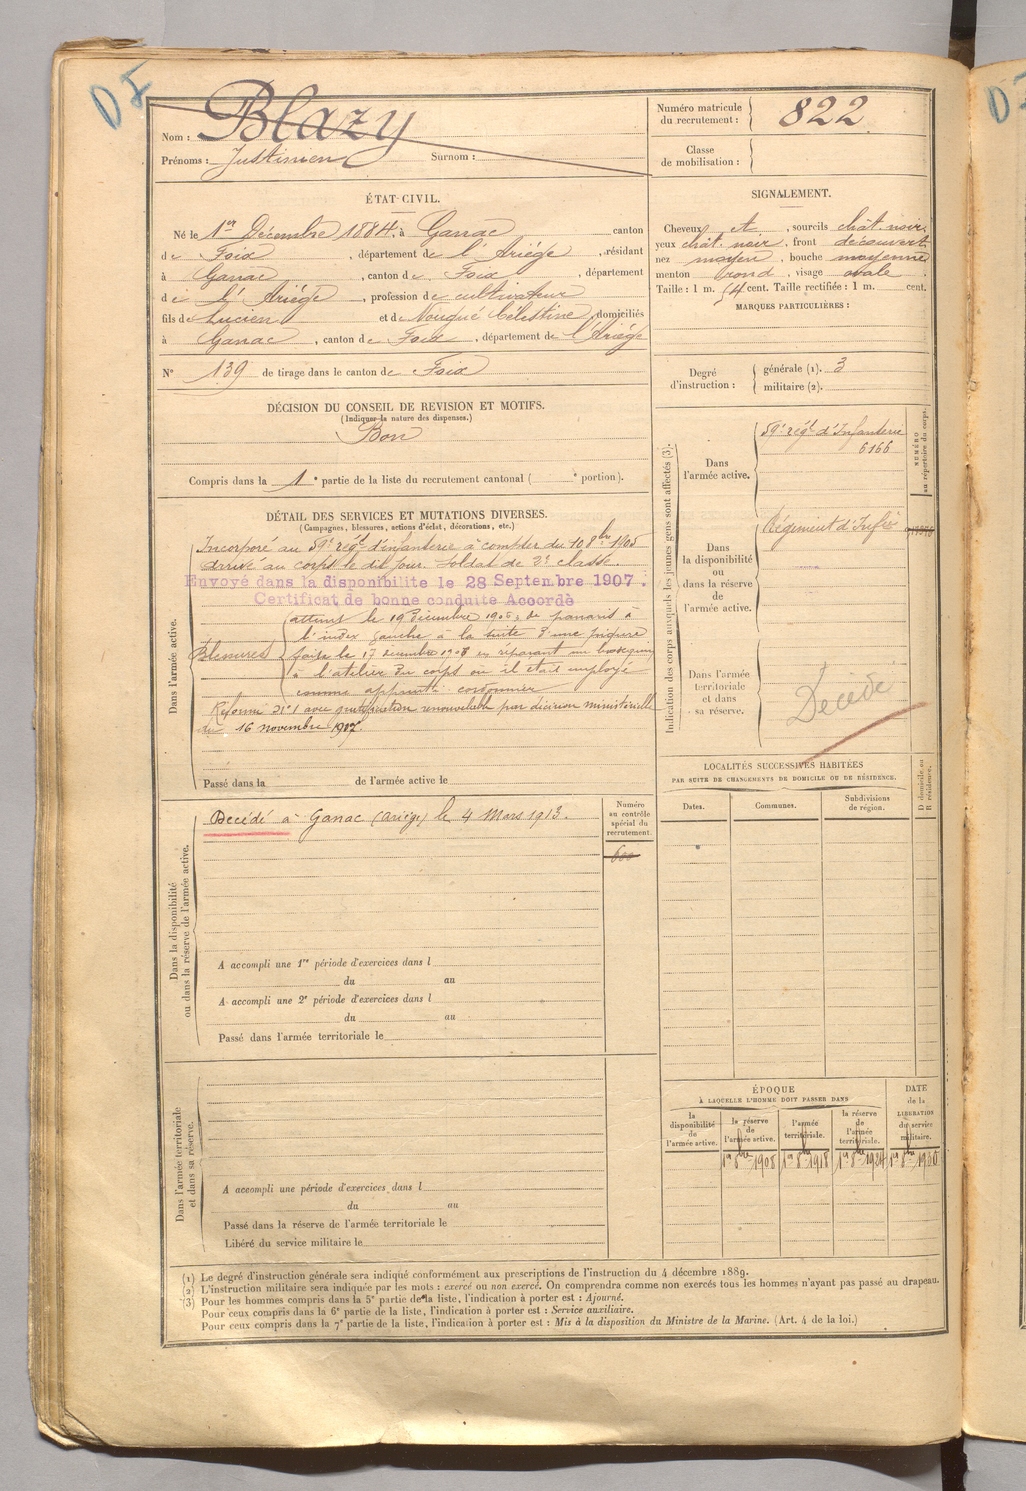 Nom : Blazy
Prénoms : Justinien Surnom :
Numéro matricule du recrutement : 822
Classe de mobilisation :
ÉTAT CIVIL.
Né le 1er Décembre 1884, à Ganac canton
de Foix, département de l'Ariége, résidant
à Ganac, canton de Foix, département
de l'Ariége, profession de cultivateur
fils de Lucien et de Nougué Célestine, domiciliés
à Ganac, canton de Foix, département de l'Ariége
N° 139 de tirage dans le canton de Foix
SIGNALEMENT.
Cheveux et, sourcils chât. noir,
yeux chât. noir, front découvert
nez moyen, bouche moyenne
menton rond, visage ovale.
Taille : 1 m. 54 cent. Taille rectifiée : 1 m. cent.
MARQUES PARTICULIÈRES :
Degré d'instruction : générale (1). 3
militaire (2).
DÉCISION DU CONSEIL DE REVISION ET MOTIFS.
(Indiquer la nature des dispenses.)
Bon
Compris dans la 1e partie de la liste du recrutement cantonal ( e portion).
DÉTAIL DES SERVICES ET MUTATIONS DIVERSES.
(Campagnes, blessures, actions d'éclat, décorations, etc.)
Dans l'armée active.
Incorporé au 59e régt d'infanterie à compter du 10 8bre 1905
Arrivé au corps le dit jour. Soldat de 2e classe.
Envoyé dans la disponibilite le 28 Septembre 1907.
Certificat de bonne conduite Accordè
Blessures atteint le 19 décembre 190 de panaris à
l'index gauche à la suite d'une piqure
faite le 17 décembre 190 en réparant un
à l'atelier du corps où il était employé
comme apprenti cordonnier
Réformé n°1 avec gratification renouvelable par décision ministérielle
du 16 novembre 1907.
Passé dans la de l'armée active le
Indication des corps auxquels les jeunes gens sont affectés (3).
NUMÉRO au répertoire du corps.
Dans l'armée active.
59e régt d'Infanterie
6166
Dans la disponibilité ou dans la réserve de l'armée active.
Régiment d'Infie
Dans l'armée territoriale et dans sa réserve.
Décédé
Dans la disponibilité ou dans la réserve de l'armée active.
Décédé à Ganac (Ariège) le 4 Mars 1913.
Numéro au contrôle spécial du recrutement.
A accompli une 1re période d'exercices dans l
du au
A accompli une 2e période d'exercices dans l
du au
Passé dans l'armée territoriale le
LOCALITÉS SUCCESSIVES HABITÉES
PAR SUITE DE CHANGEMENTS DE DOMICILE OU DE RÉSIDENCE.
D domicile ou R résidence.
Dates. Communes. Subdivisions de région.
Dans l'armée territoriale et dans sa réserve.
A accompli une période d'exercices dans l
du au
Passé dans la réserve de l'armée territoriale le
Libéré du service militaire le
ÉPOQUE
À LAQUELLE L'HOMME DOIT PASSER DANS
DATE de la LIBÉRATION du service militaire.
la disponibilité de l'armée active. la réserve de l'armée active. l'armée territoriale. la réserve de l'armée territoriale.
1er 8bre 1908 1er 8bre 1918 1er 8bre 1924 1er 8bre 1930
(1) Le degré d'instruction générale sera indiqué conformément aux prescriptions de l'instruction du 4 décembre 1889.
(2) L'instruction militaire sera indiquée par les mots : exercé ou non exercé. On comprendra comme non exercés tous les hommes n'ayant pas passé au drapeau.
(3) Pour les hommes compris dans la 5e partie de la liste, l'indication à porter est : Ajourné.
Pour ceux compris dans la 6e partie de la liste, l'indication à porter est : Service auxiliaire.
Pour ceux compris dans la 7e partie de la liste, l'indication à porter est : Mis à la disposition du Ministre de la Marine. (Art. 4 de la loi.)